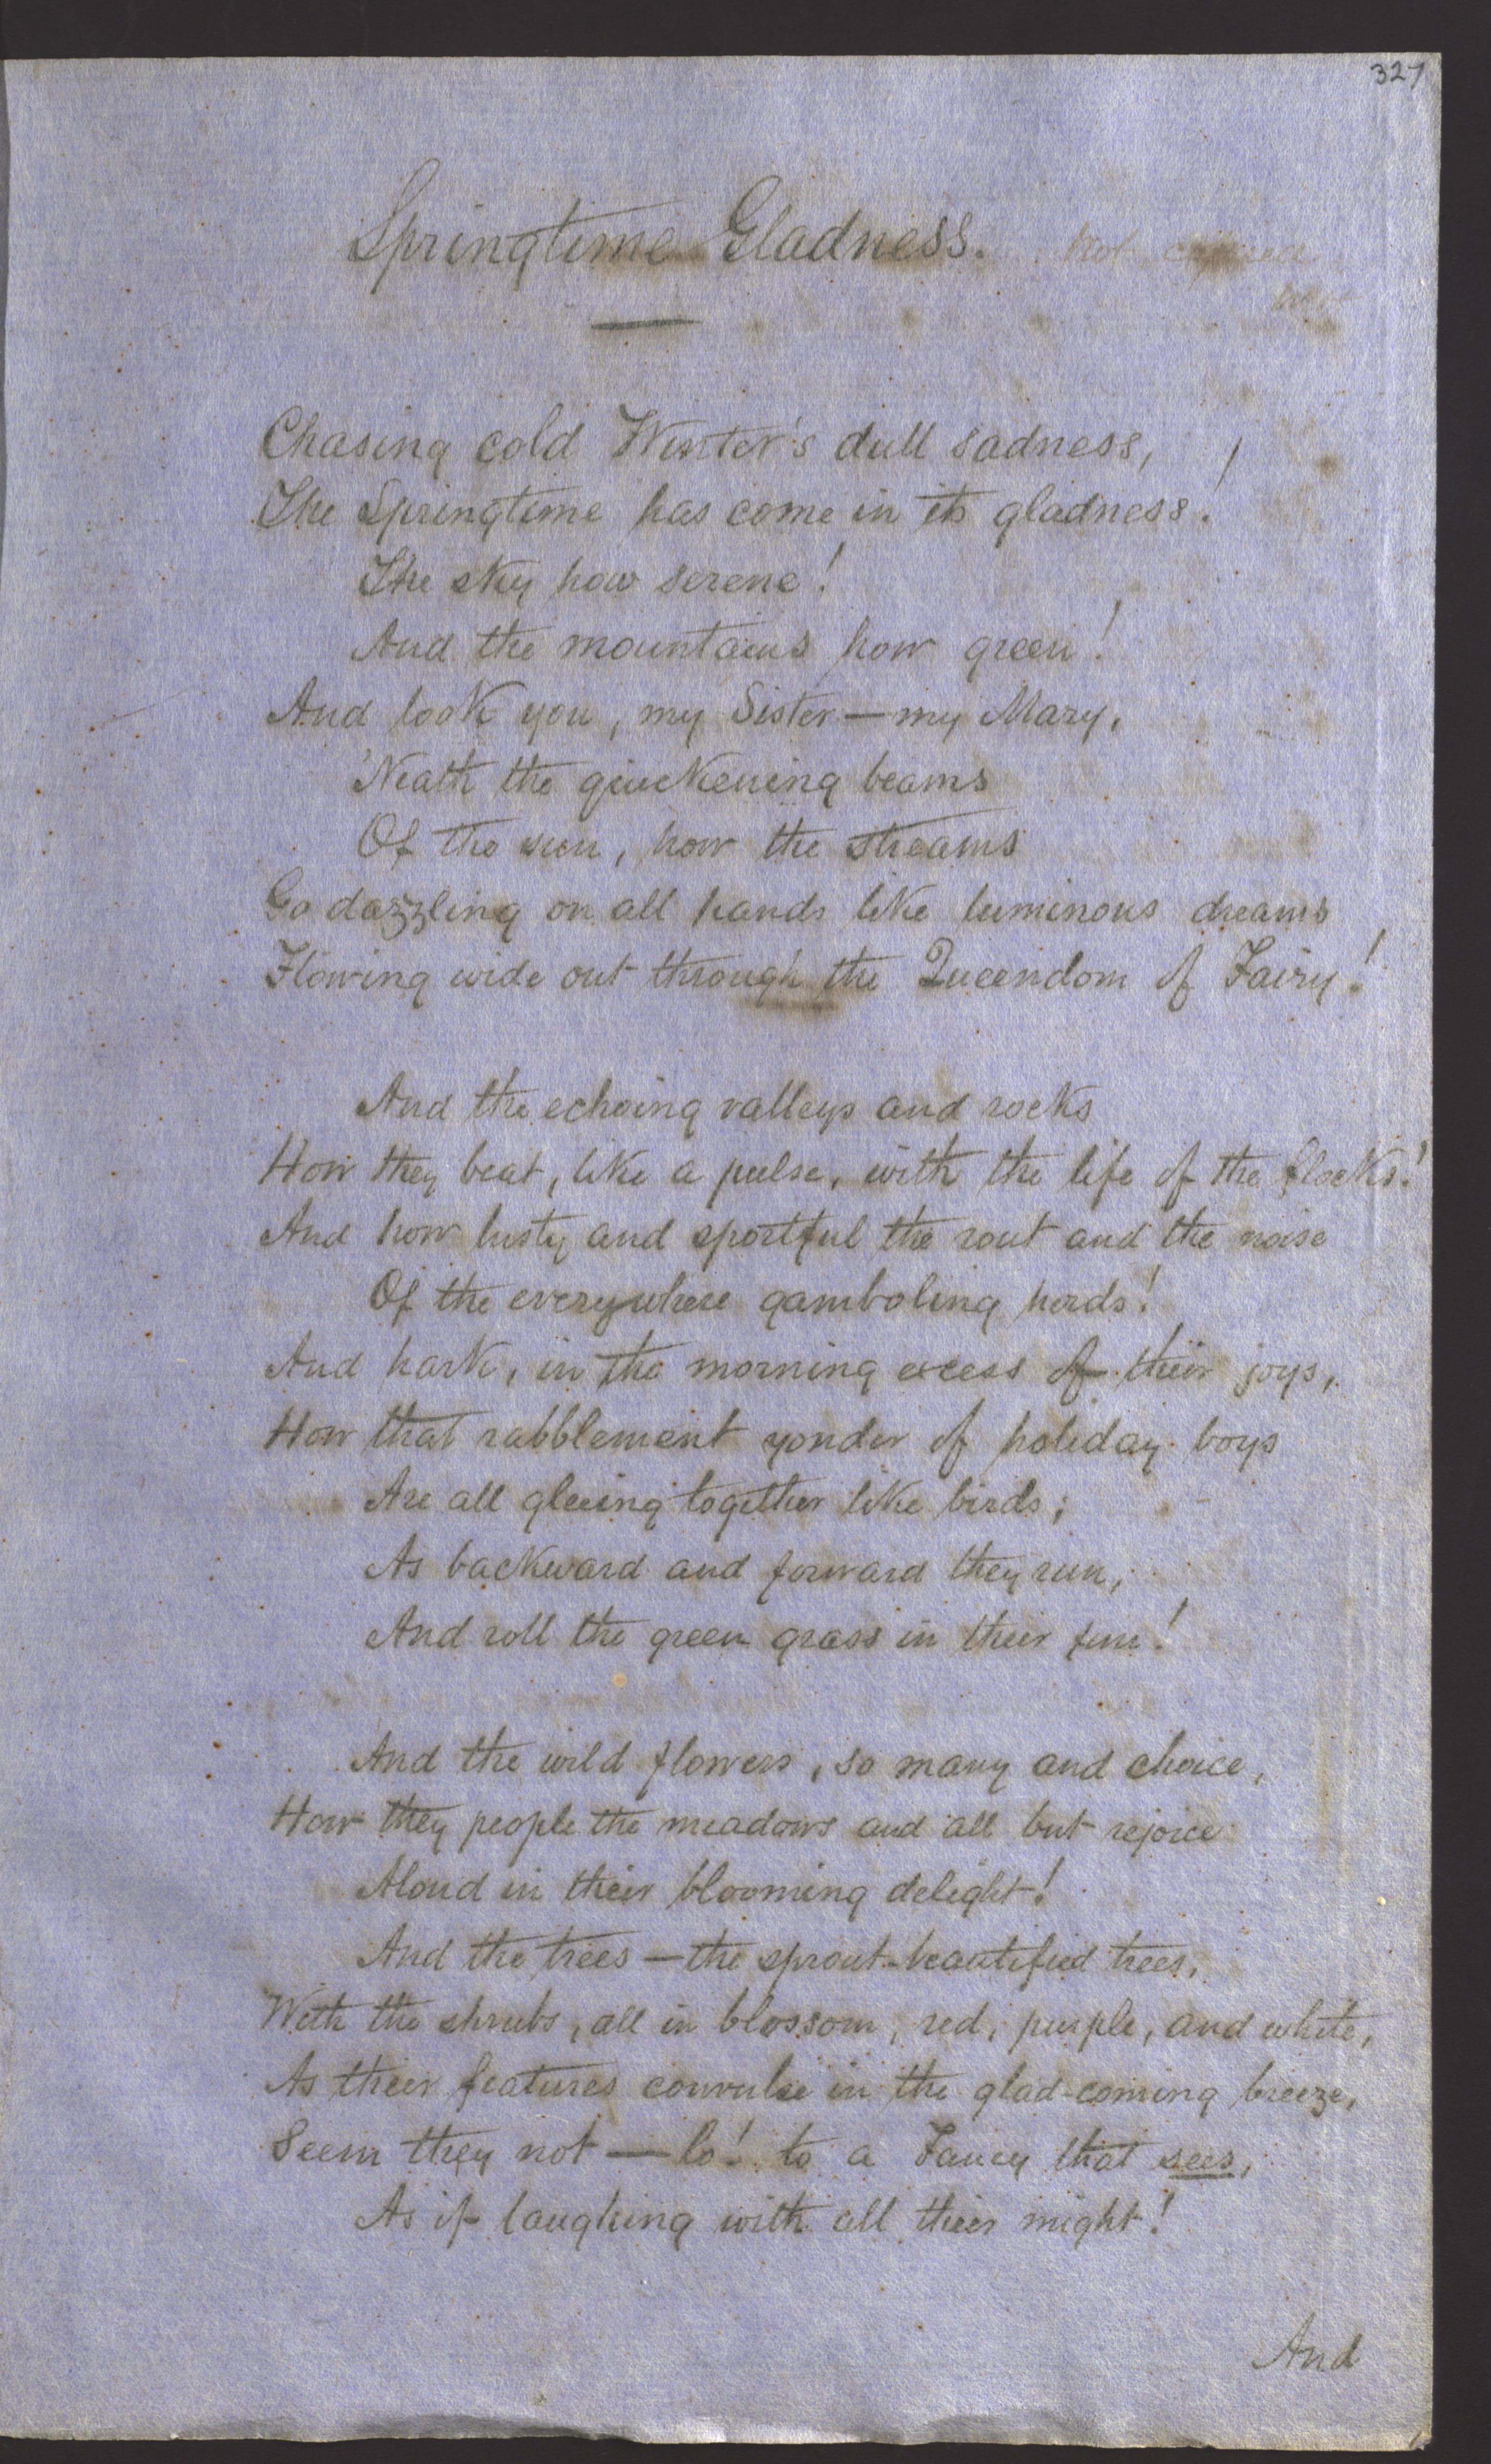 327
Springtime Gladness. Not
Chasing cold Winter's dull sadness,
The Springtime has come in its gladness!
The sky how serene!
And the mountains how green!
And look you, my Sister — my Mary,
'Neath the quickening beams
Of the sun, how the streams
Go dazzling on all hands like luminous dreams
Flowing wide out through the Queendom of Fairy!
And the echoing valleys and rocks
How they beat, like a pulse, with the life of the flocks!
And how lusty and sportful the rout and the noise
Of the everywhere gamboling herds!
And hark, in the morning excess of their joys,
How that rabblement yonder of holiday boys
Are all gleeing together like birds;
As backward and forward they run,
And roll the green grass in their fun!
And the wild flowers, so many and choice,
How they people the meadows and all but rejoice
Aloud in their blooming delight!
And the trees — the sprout-beautified trees,
With the shrubs, all in blossom, red, purple, and white,
As their features convulse in the glad-coming breeze,
Seem they not — lo! to a Fancy that sees,
As if laughing with all their might!
And